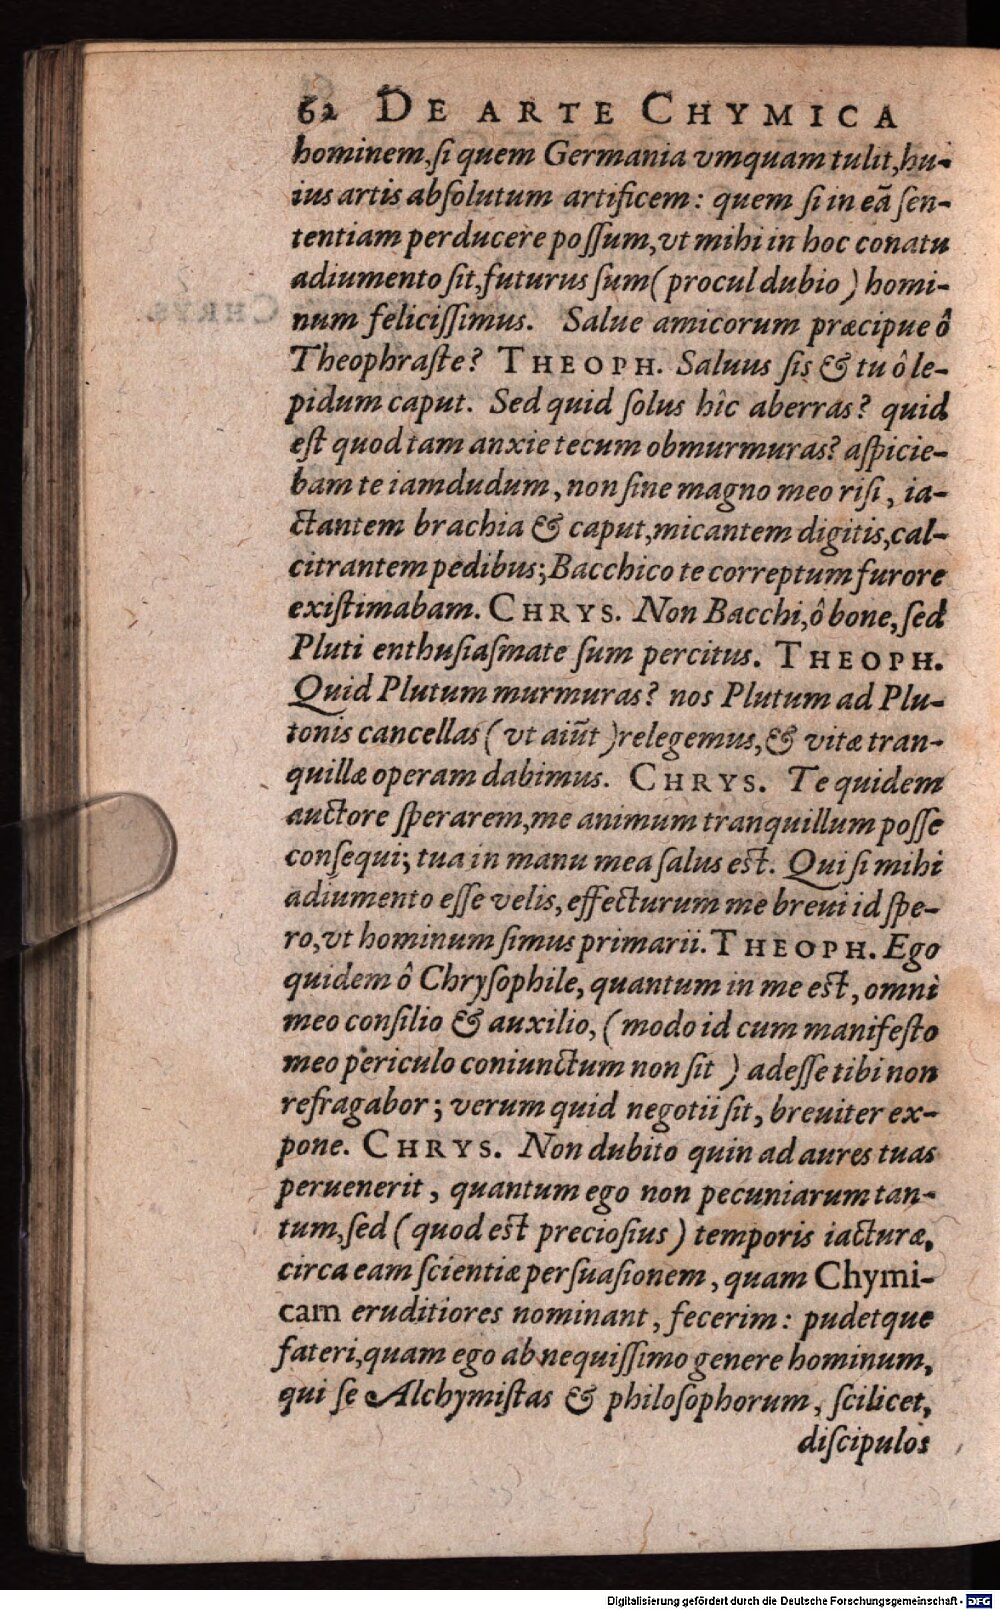 62 DE ARTE CHYMICA
hominem, ſi quem Germania vmquam tulit, hu-
ius artis abſolutum artificem: quem ſi in eã ſen-
tentiam perducere poſſum, vt mihi in hoc conatu
adiumento ſit, futurus ſum (procul dubio) homi-
num feliciſſimus. Salue amicorum præcipue ô
Theophraſte? THEOPH. Saluus ſis & tu ô le-
pidum caput. Sed quid ſolus hîc aberras? quid
eſt quod tam anxie tecum obmurmuras? aſpicie-
bam te iamdudum, non ſine magno meo riſi, ia-
ctantem brachia & caput, micantem digitis, cal-
citrantem pedibus; Bacchico te correptum furore
exiſtimabam. CHRYS. Non Bacchi, ô bone, ſed
Pluti enthuſiaſmate ſum percitus. THEOPH.
Quid Plutum murmuras? nos Plutum ad Plu-
tonis cancellas (vt aiũt) relegemus, & vitæ tran-
quillæ operam dabimus. CHRYS. Te quidem
auctore ſperarem, me animum tranquillum poſſe
conſequi; tua in manu mea ſalus eſt. Qui ſi mihi
adiumento eſſe velis, effecturum me breui id ſpe-
ro, vt hominum ſimus primarii. THEOPH. Ego
quidem ô Chryſophile, quantum in me eſt, omni
meo conſilio & auxilio, (modo id cum manifeſto
meo periculo coniunctum non ſit) adeſſe tibi non
refragabor; verum quid negotii ſit, breuiter ex-
pone. CHRYS. Non dubito quin ad aures tuas
peruenerit, quantum ego non pecuniarum tan-
tum, ſed (quod eſt precioſius) temporis iacturæ,
circa eam ſcientiæ perſuaſionem, quam Chymi-
cam eruditiores nominant, fecerim: pudetque
fateri, quam ego ab nequiſſimo genere hominum,
qui ſe Alchymiſtas & philoſophorum, ſcilicet,
diſcipulos
Digitalisierung gefördert durch die Deutsche Forschungsgemeinschaft - DFG